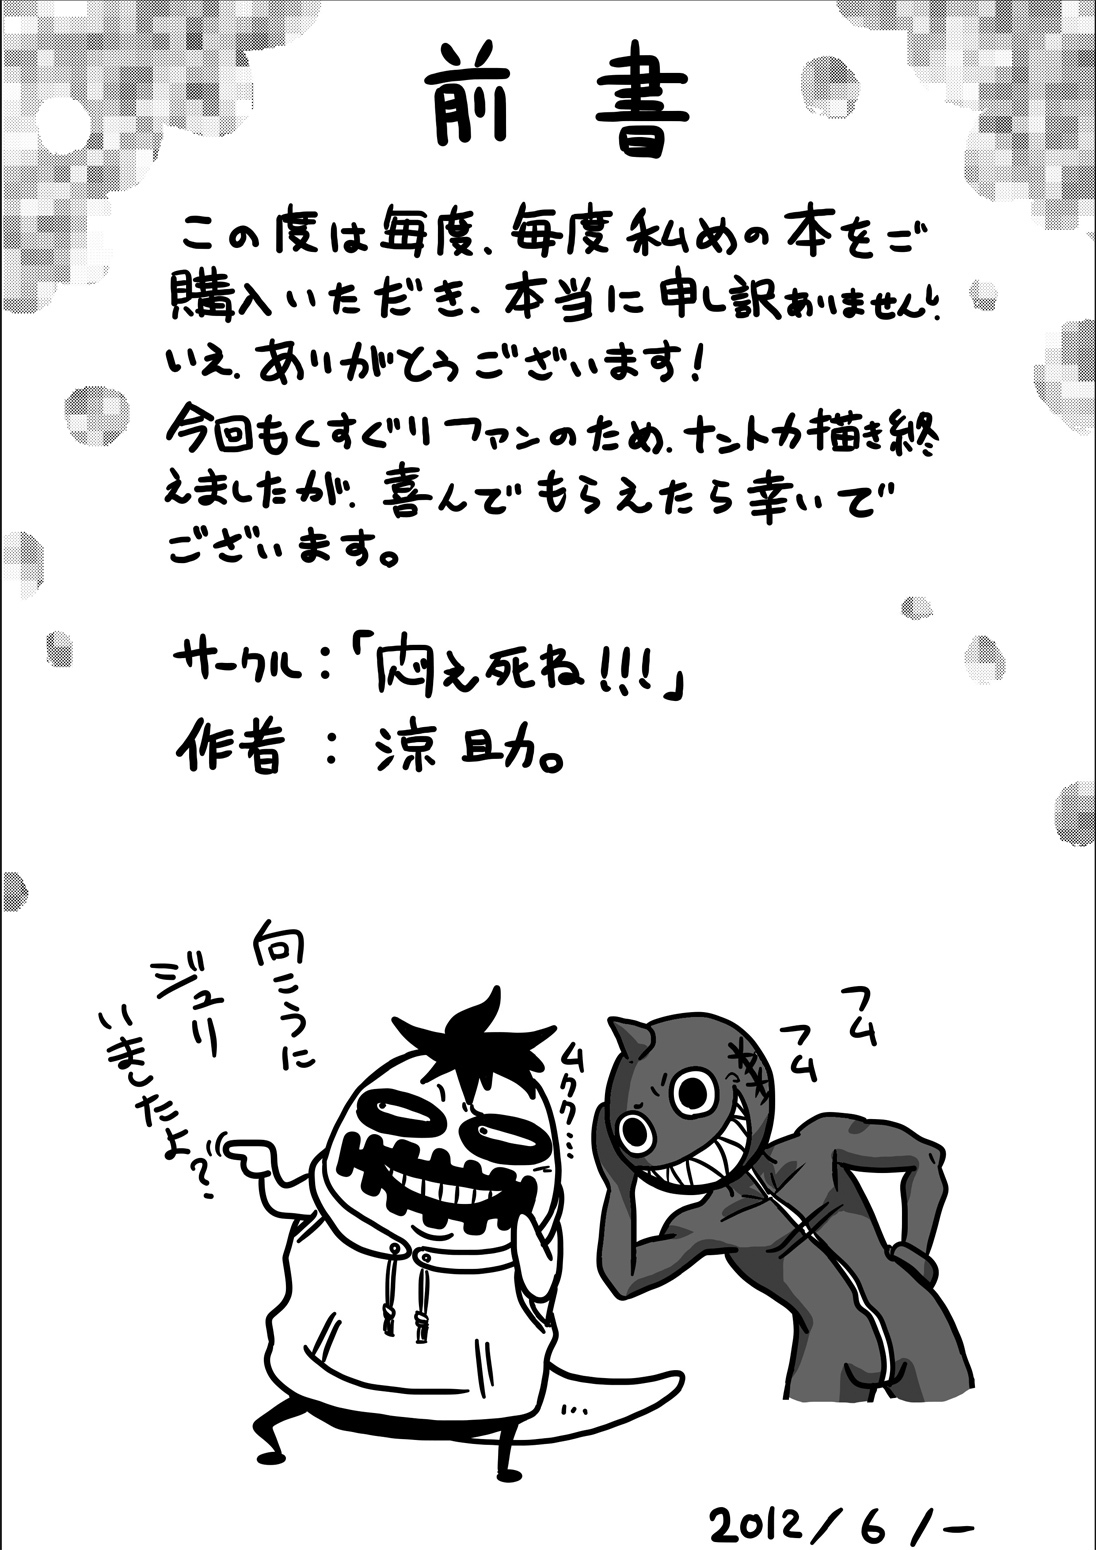 前書
この度は毎度、毎度私めの本をご
購入いただき、本当に申し訳ありません!
いえ、ありがとうございます!
今回もくすぐりファンのため、ナントカ描き終
えましたが、喜んでもらえたら幸いで
ございます。
サークル:「悶え死ね!!!」
作者 : 涼助。
向こうに
ジュリ
いましたよ?
ムクク…
フム
フム
2012/6/ー